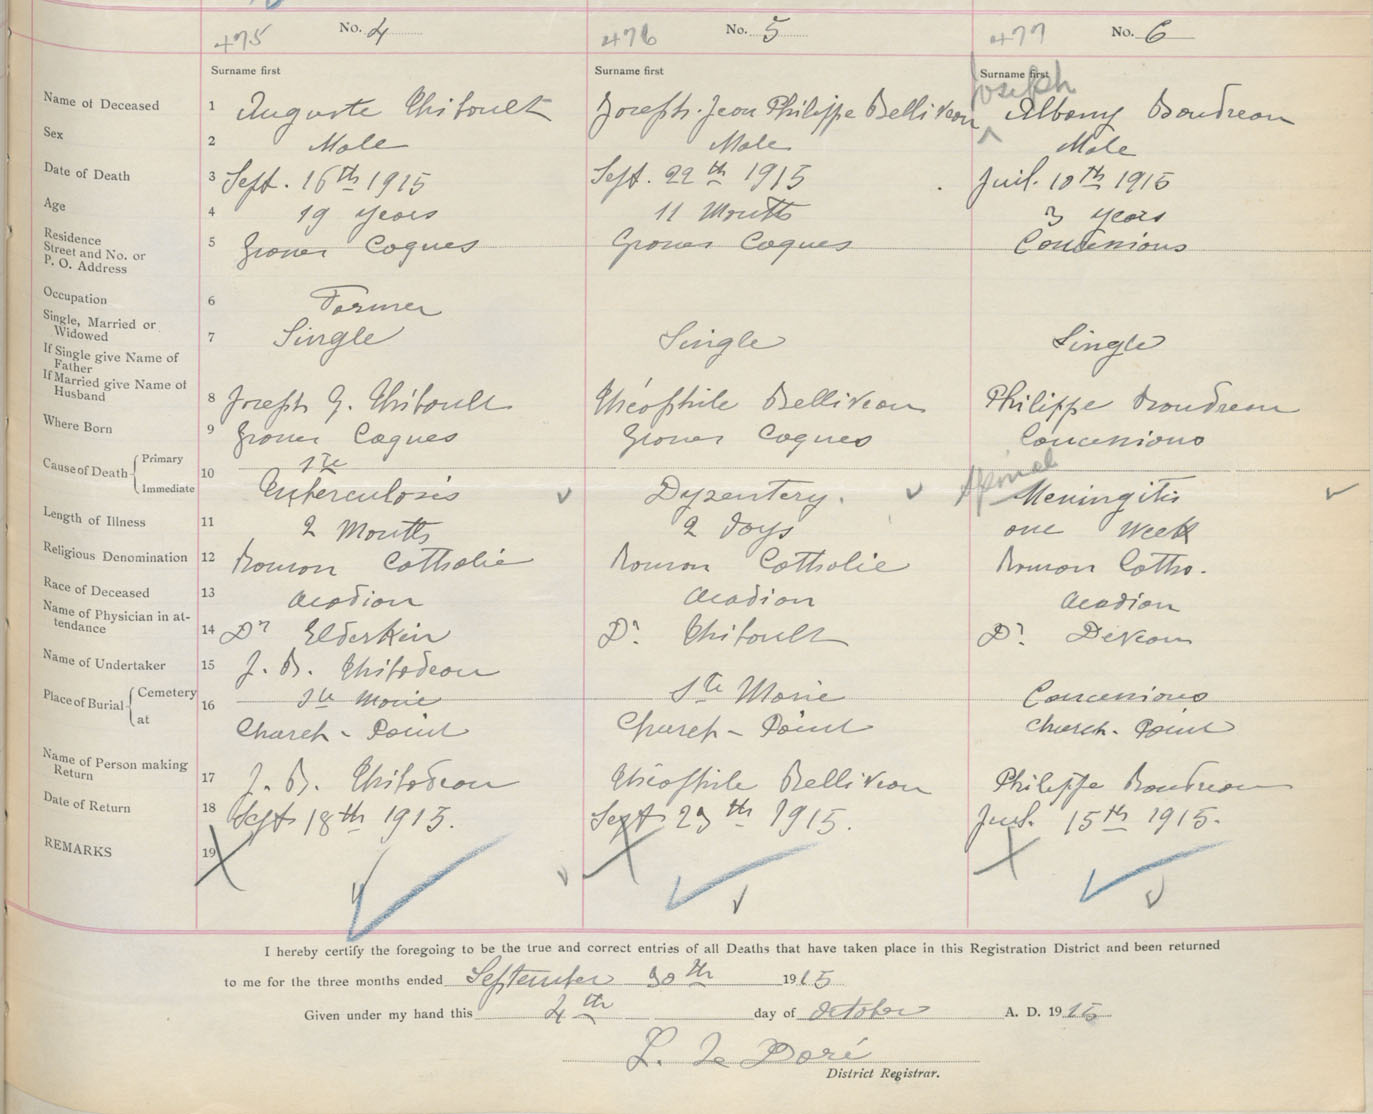 475 No. 4 476 No. 5 477 No. 6
Surname first Surname first Surname first
Joseph
Name of Deceased 1 Auguste Thibault Joseph. Jean Philippe Belliveau Albany Boudreau
Sex 2 Male Male Male
Date of Death 3 Sept. 16th 1915 Sept. 22th 1915 Juil. 10th 1915
Age 4 19 years 11 Months 3 years
Residence Street and No. or P. O. Address 5 Grosses Coques Grosses Coques Concessions
Occupation 6 Farmer
Single, Married or Widowed 7 Single Single Single
If Single give Name of Father
If Married give Name of Husband 8 Joseph G. Thibault Théophile Belliveau Philippe Boudreau
Where Born 9 Grosses Coques Grosses Coques Concessions
Cause of Death Primary Immediate 10 Tuberculosis Dyzentery. Spinal Meningitis
Length of Illness 11 2 Months 2 days one week
Religious Denomination 12 Roman Catholic Roman Catholic Roman Catho.
Race of Deceased 13 Acadian Acadian Acadian
Name of Physician in attendance 14 Dr Elderkin Dr. Thibault Dr. Deveau
Name of Undertaker 15 J. B. Thibodeau
Place of Burial Cemetery 16 Ste Marie Ste Marie Concessions
at Church - Point Church - Point Church - Point
Name of Person making Return 17 J. B. Thibodeau Théophile Belliveau Philippe Boudreau
Date of Return 18 Sept 18th 1915. Sept 23th 1915. Juil. 15th 1915.
REMARKS 19
I hereby certify the foregoing to be the true and correct entries of all Deaths that have taken place in this Registration District and been returned
to me for the three months ended September 30th 1915
Given under my hand this 4th day of October A. D. 1915
L. Le Doré
District Registrar.